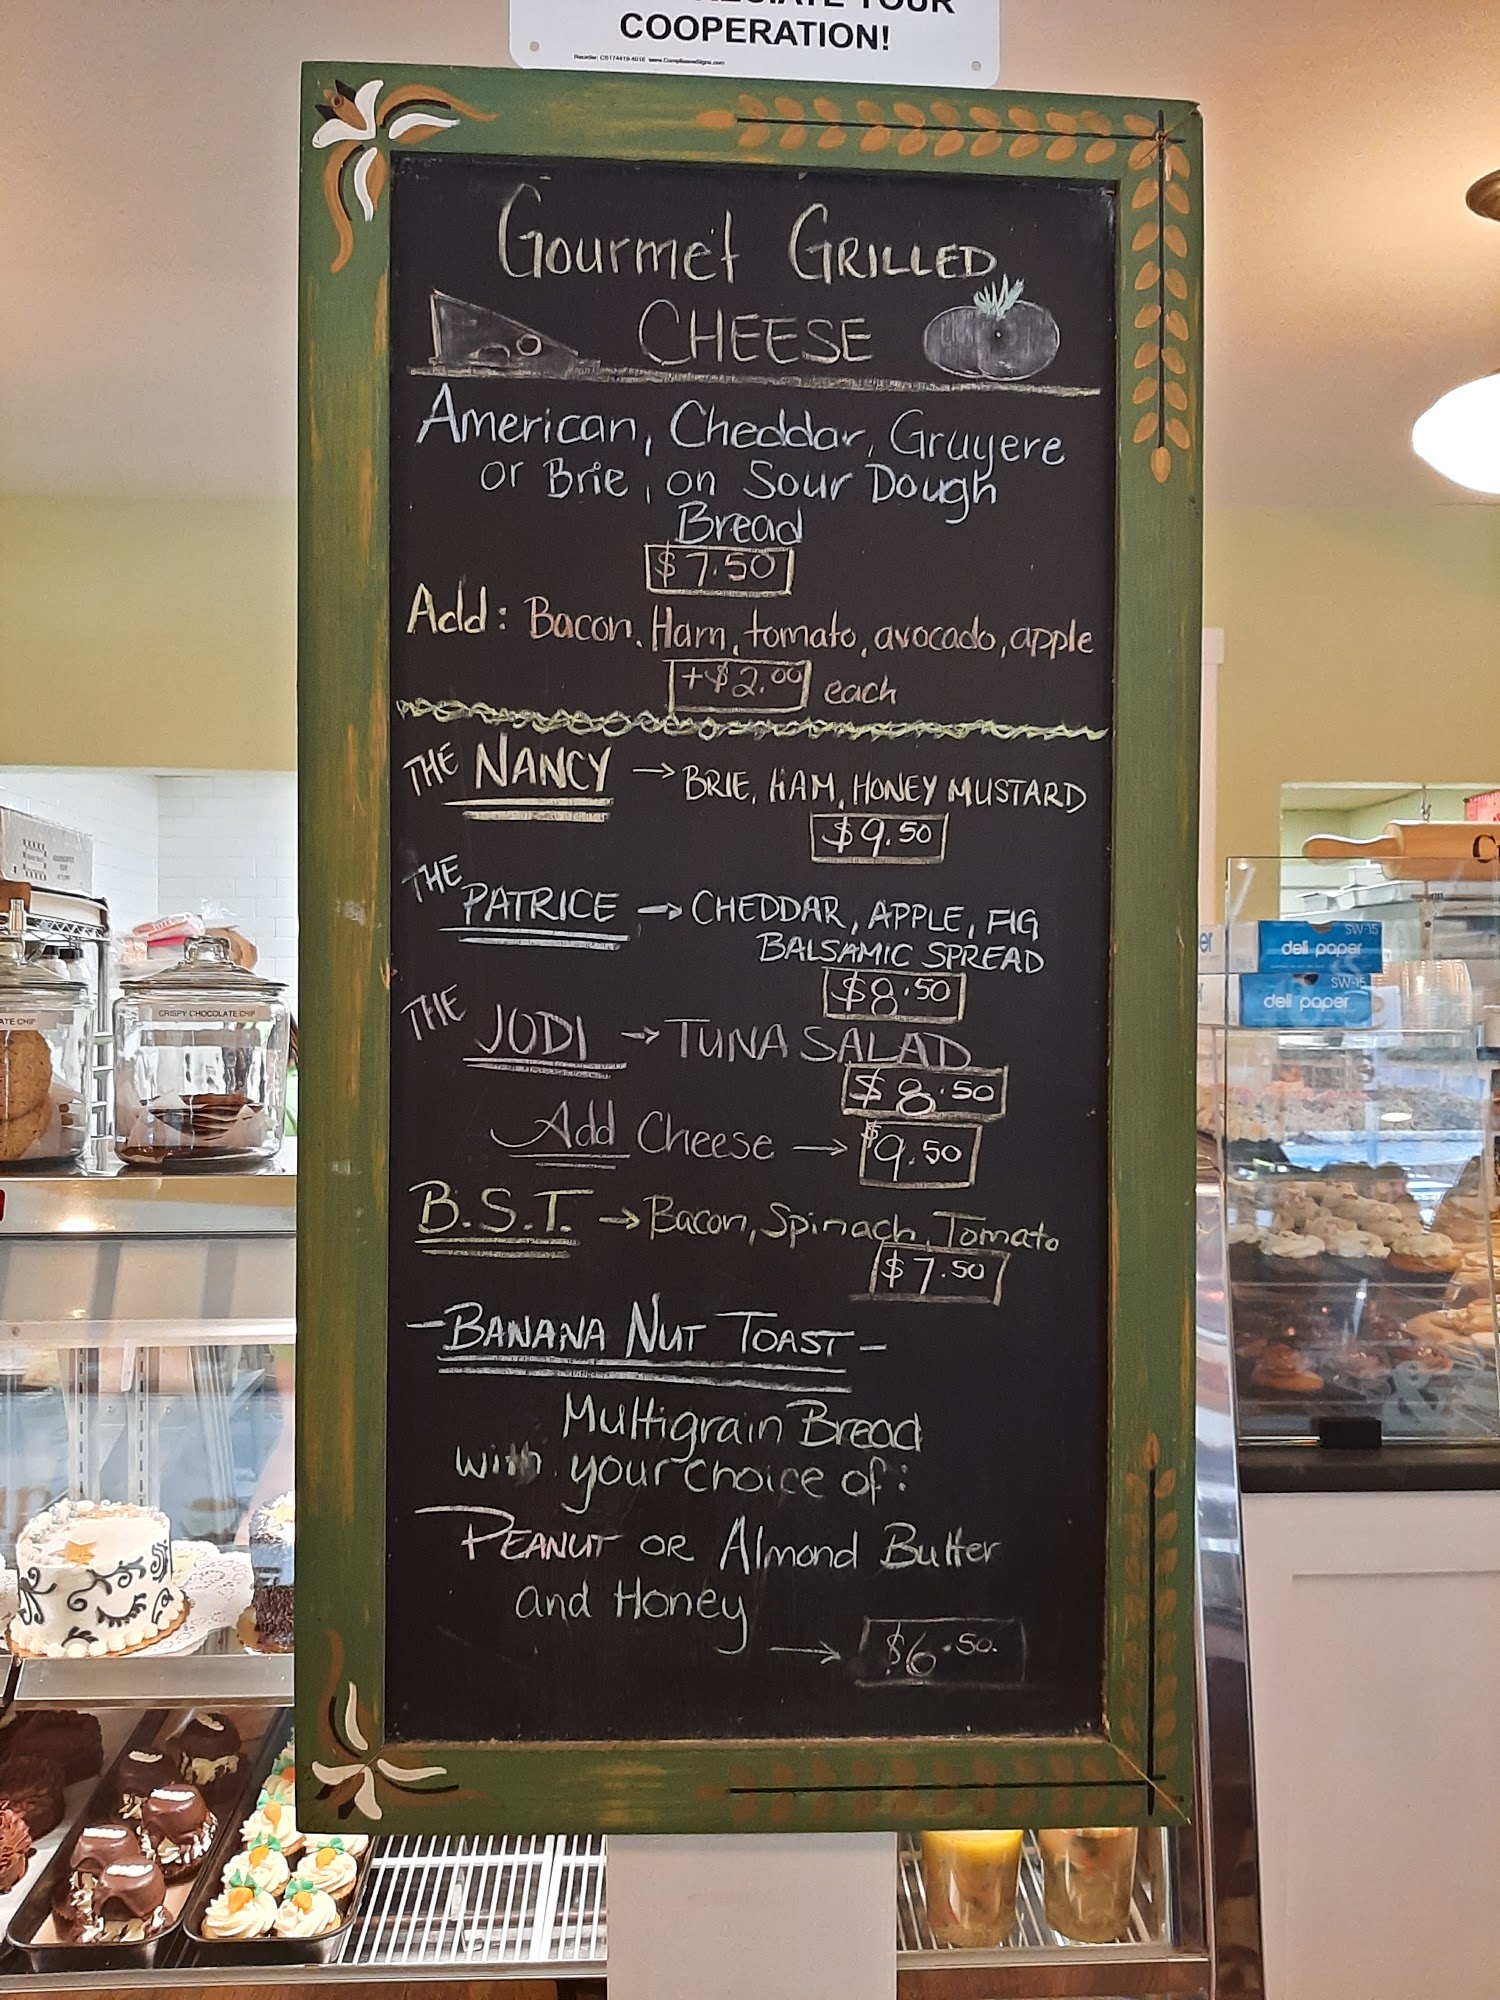 COOPERATION!
Gourmet GRILLED
CHEESE
American, Cheddar, Gruyere
or Brie, on Sour Dough
Bread
$7.50
Add: Bacon, Ham, tomato, avocado, apple
+$2.00 each
THE NANCY → BRIE, HAM, HONEY MUSTARD
$9.50
THE PATRICE → CHEDDAR, APPLE, FIG
BALSAMIC SPREAD
$8.50
THE JODI → TUNA SALAD
$8.50
Add Cheese → $9.50
B.S.T. → Bacon, Spinach, Tomato
$7.50
-BANANA NUT TOAST-
Multigrain Bread
with your choice of:
PEANUT OR Almond Butter
and Honey
→ $6.50.
CRISPY CHOCOLATE CHIP
SW-15
deli paper
SW-15
deli paper